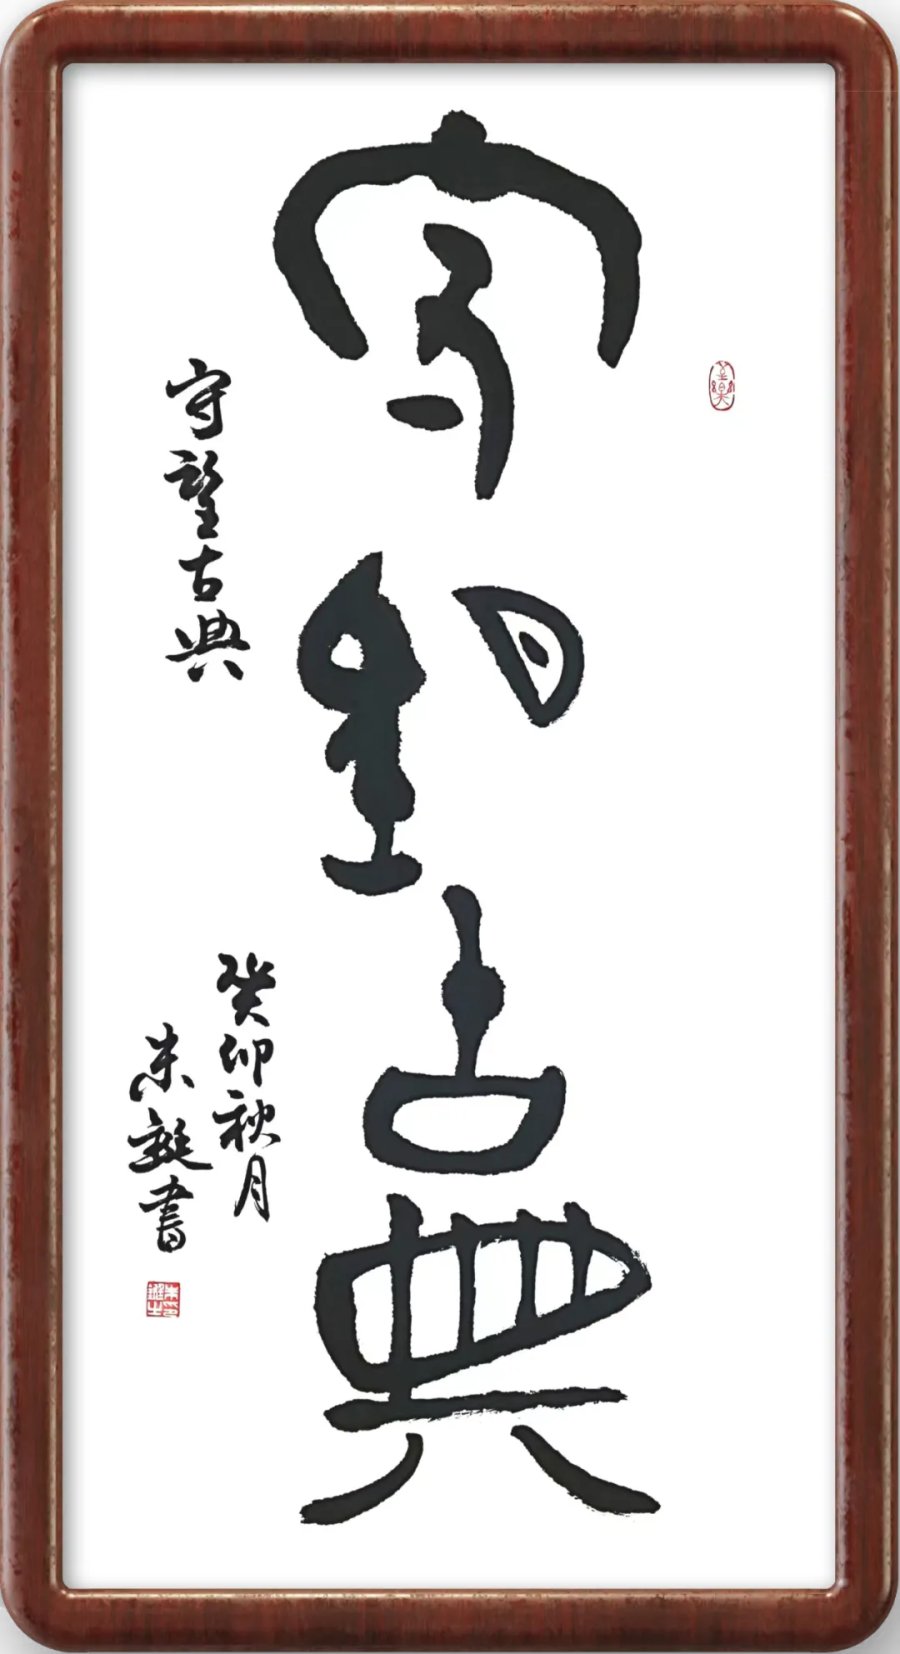 守望古典
守望古典
癸卯秋月
朱艇書